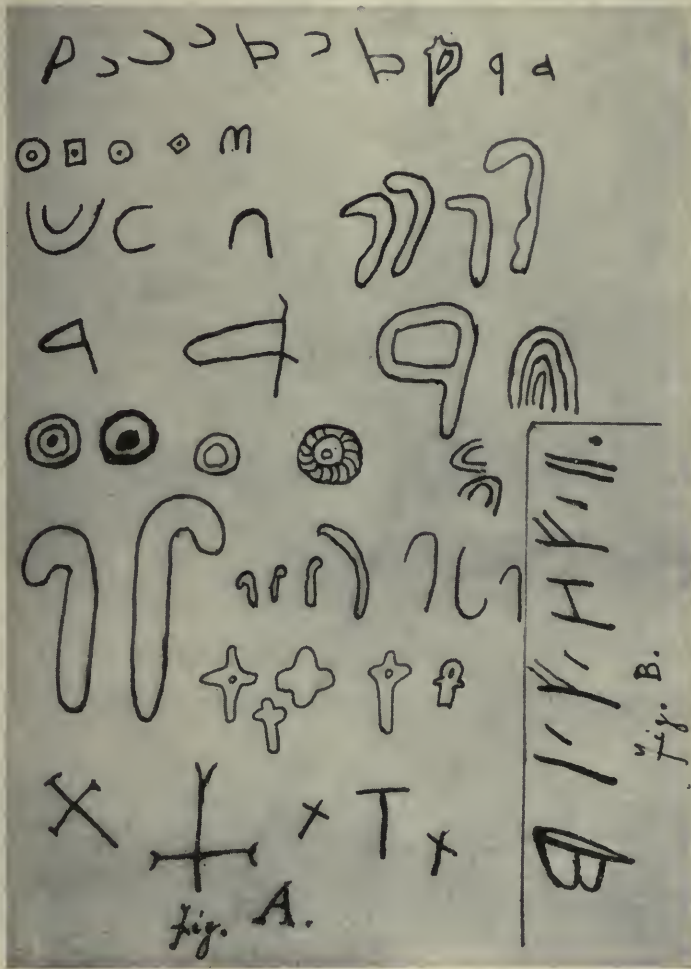 fig. A.
fig. B.